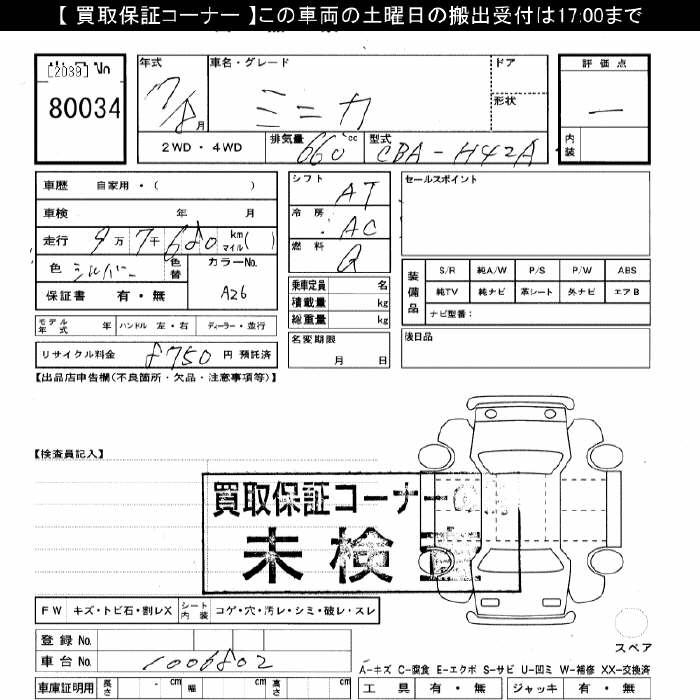 【 買取保証コーナー 】この車両の土曜日の搬出受付は17:00まで
[2039] No
80034
年式
月
車名・グレード
ミニカ
ドア
形状
評価点
一
内装
2WD ・ 4WD
排気量
660 cc
型式
CBA-H42A
車歴 自家用・( )
車検 年 月
走行 9万 7千 680 km マイル( )
色 シルバー 色替
カラーNo.
A26
保証書 有・無
モデル年式 年 ハンドル 左・右 ディーラー・並行
リサイクル料金 8750 円 預託済
シフト
AT
冷房
AC
燃料
G
乗車定員 名
積載量 kg
総重量 kg
名変期限
月 日
セールスポイント
装備品
S/R 純A/W P/S P/W ABS
純TV 純ナビ 革シート 外ナビ エアB
ナビ型番:
後日品
【出品店申告欄(不良箇所・欠品・注意事項等)】
【検査員記入】
買取保証コーナー
未検
FW キズ・トビ石・割レX シート内装 コゲ・穴・汚レ・シミ・破レ・スレ
登録 No.
車台 No. 1006802
車庫証明用 長さ cm 幅 cm 高さ cm
スペア
A-キズ C-腐食 E-エクボ S-サビ U-凹ミ W-補修 XX-交換済
工具 有・無 ジャッキ 有・無